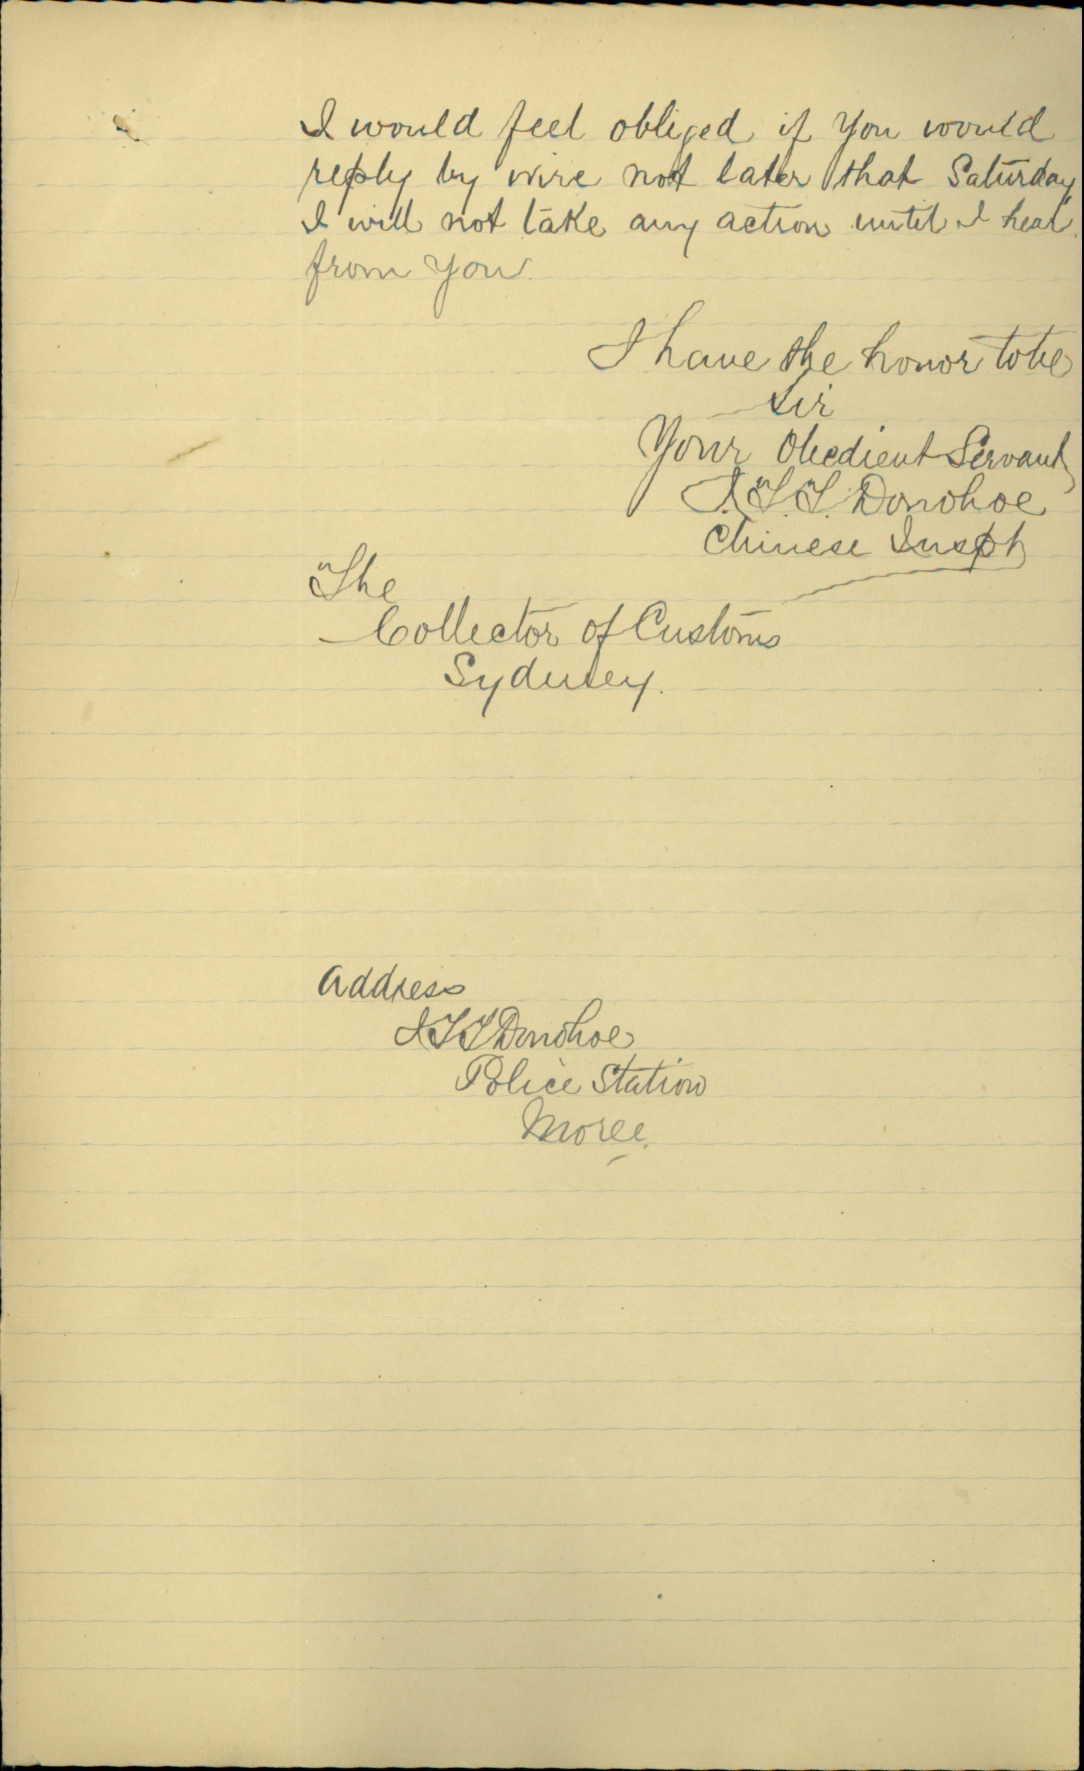 I would feel obliged if you would
reply by wire not later that Saturday
I will not take any action until I hear
from you.
I have the honor to be
Sir
Your Obedient Servant
J.T.T. Donohoe
Chinese Inspt
The
Collector of Customs
Sydney.
Address
J T T Donohoe
Police Station
Moree.